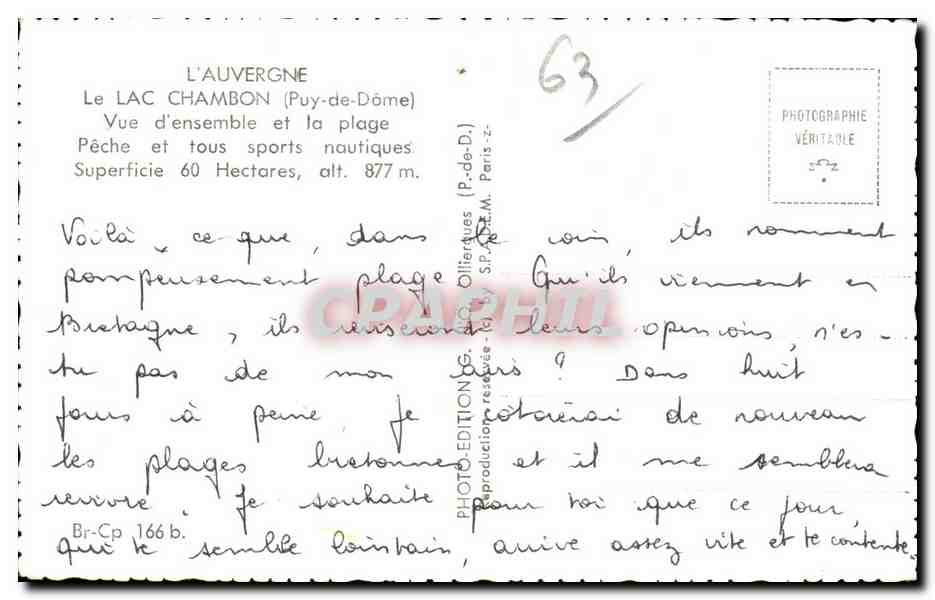 L'AUVERGNE
Le LAC CHAMBON (Puy-de-Dôme)
Vue d'ensemble et la plage
Pêche et tous sports nautiques.
Superficie 60 Hectares, alt. 877 m.
63
PHOTOGRAPHIE
VÉRITABLE
Voilà, ce que, dans le coin, ils nomment
pompeusement plage. Qu'ils viennent en
Bretagne, ils réviseront leurs opinions, n'es-
tu pas de mon avis ? Dans huit
jours à peine je côtoierai de nouveau
les plages bretonnes et il me semblera
revivre. Je souhaite pour toi que ce jour,
qui te semble lointain, arrive assez vite et te contente.
Br-Cp 166 b.
PHOTO-EDITION G. d'O. Ollierques (P.-de-D.)
Reproduction réservée - (c) by S.P.A.D.E.M. Paris -z-
CPAPHIL